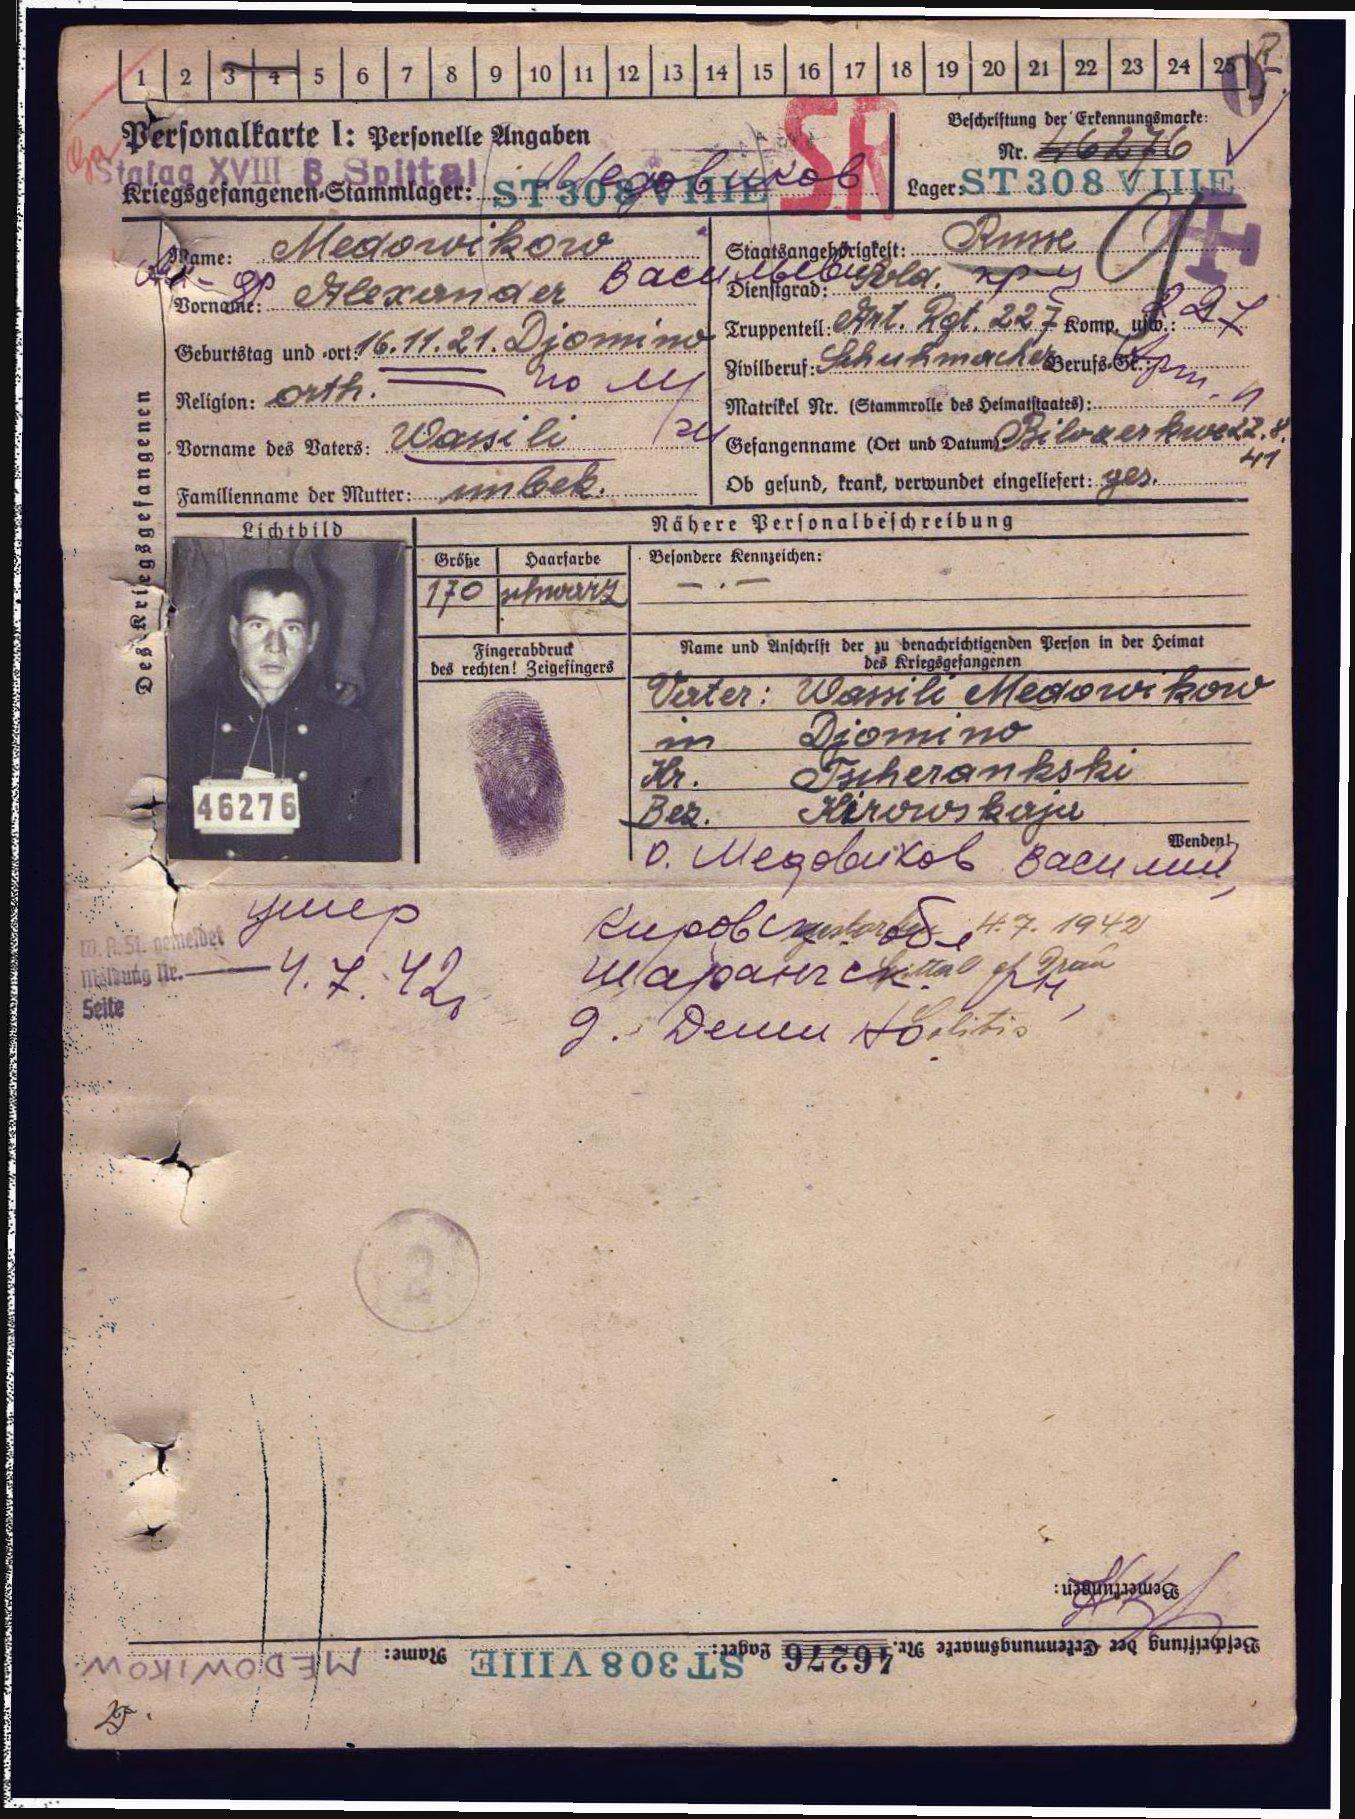 1 2 3 4 5 6 7 8 9 10 11 12 13 14 15 16 17 18 19 20 21 22 23 24 25
Personalkarte I: Personelle Angaben
Beschriftung der Erkennungsmarke:
Nr. 46276
Stalag XVIII B Spittal
Медовиков
SR
Kriegsgefangenen-Stammlager: ST 308 VIIIE
Lager: ST 308 VIIIE
Des Kriegsgefangenen
Name: Medowikow
Vorname: Alexander Васильевич
Geburtstag und -ort: 16.11.21. Djomino
Religion: orth.
Vorname des Vaters: Wassili
Familienname der Mutter: unbek.
Staatsangehörigkeit: Russe
Dienstgrad: Sold. кр-ц
Truppenteil: Art. Rgt. 227 Komp. usw.: 227
Zivilberuf: Schuhmacher Berufs-Gr.:
Matrikel Nr. (Stammrolle des Heimatstaates):
Gefangenname (Ort und Datum): 22.8.
41
Ob gesund, krank, verwundet eingeliefert: ges.
Lichtbild
Nähere Personalbeschreibung
Größe Haarfarbe Besondere Kennzeichen:
170 schwarz – . –
46276
Fingerabdruck
des rechten! Zeigefingers
Name und Anschrift der zu benachrichtigenden Person in der Heimat
des Kriegsgefangenen
Vater: Wassili Medowikow
in Djomino
Kr. Tscherankski
Bez. Kirowskaja
Wenden!
о. Медовиков Василий,
умер
4.7.42г
Кировск обл
шарангск. рн,
д. Демино
gestorben 4.7. 1942
Spittal a/ Drau
W. A. St. gemeldet
Meldung Nr.
Seite
2
Bemerkungen:
Beschriftung der Erkennungsmarke Nr. 46276 Lager: ST 308 VIIIE Name: MEDOWIKOW